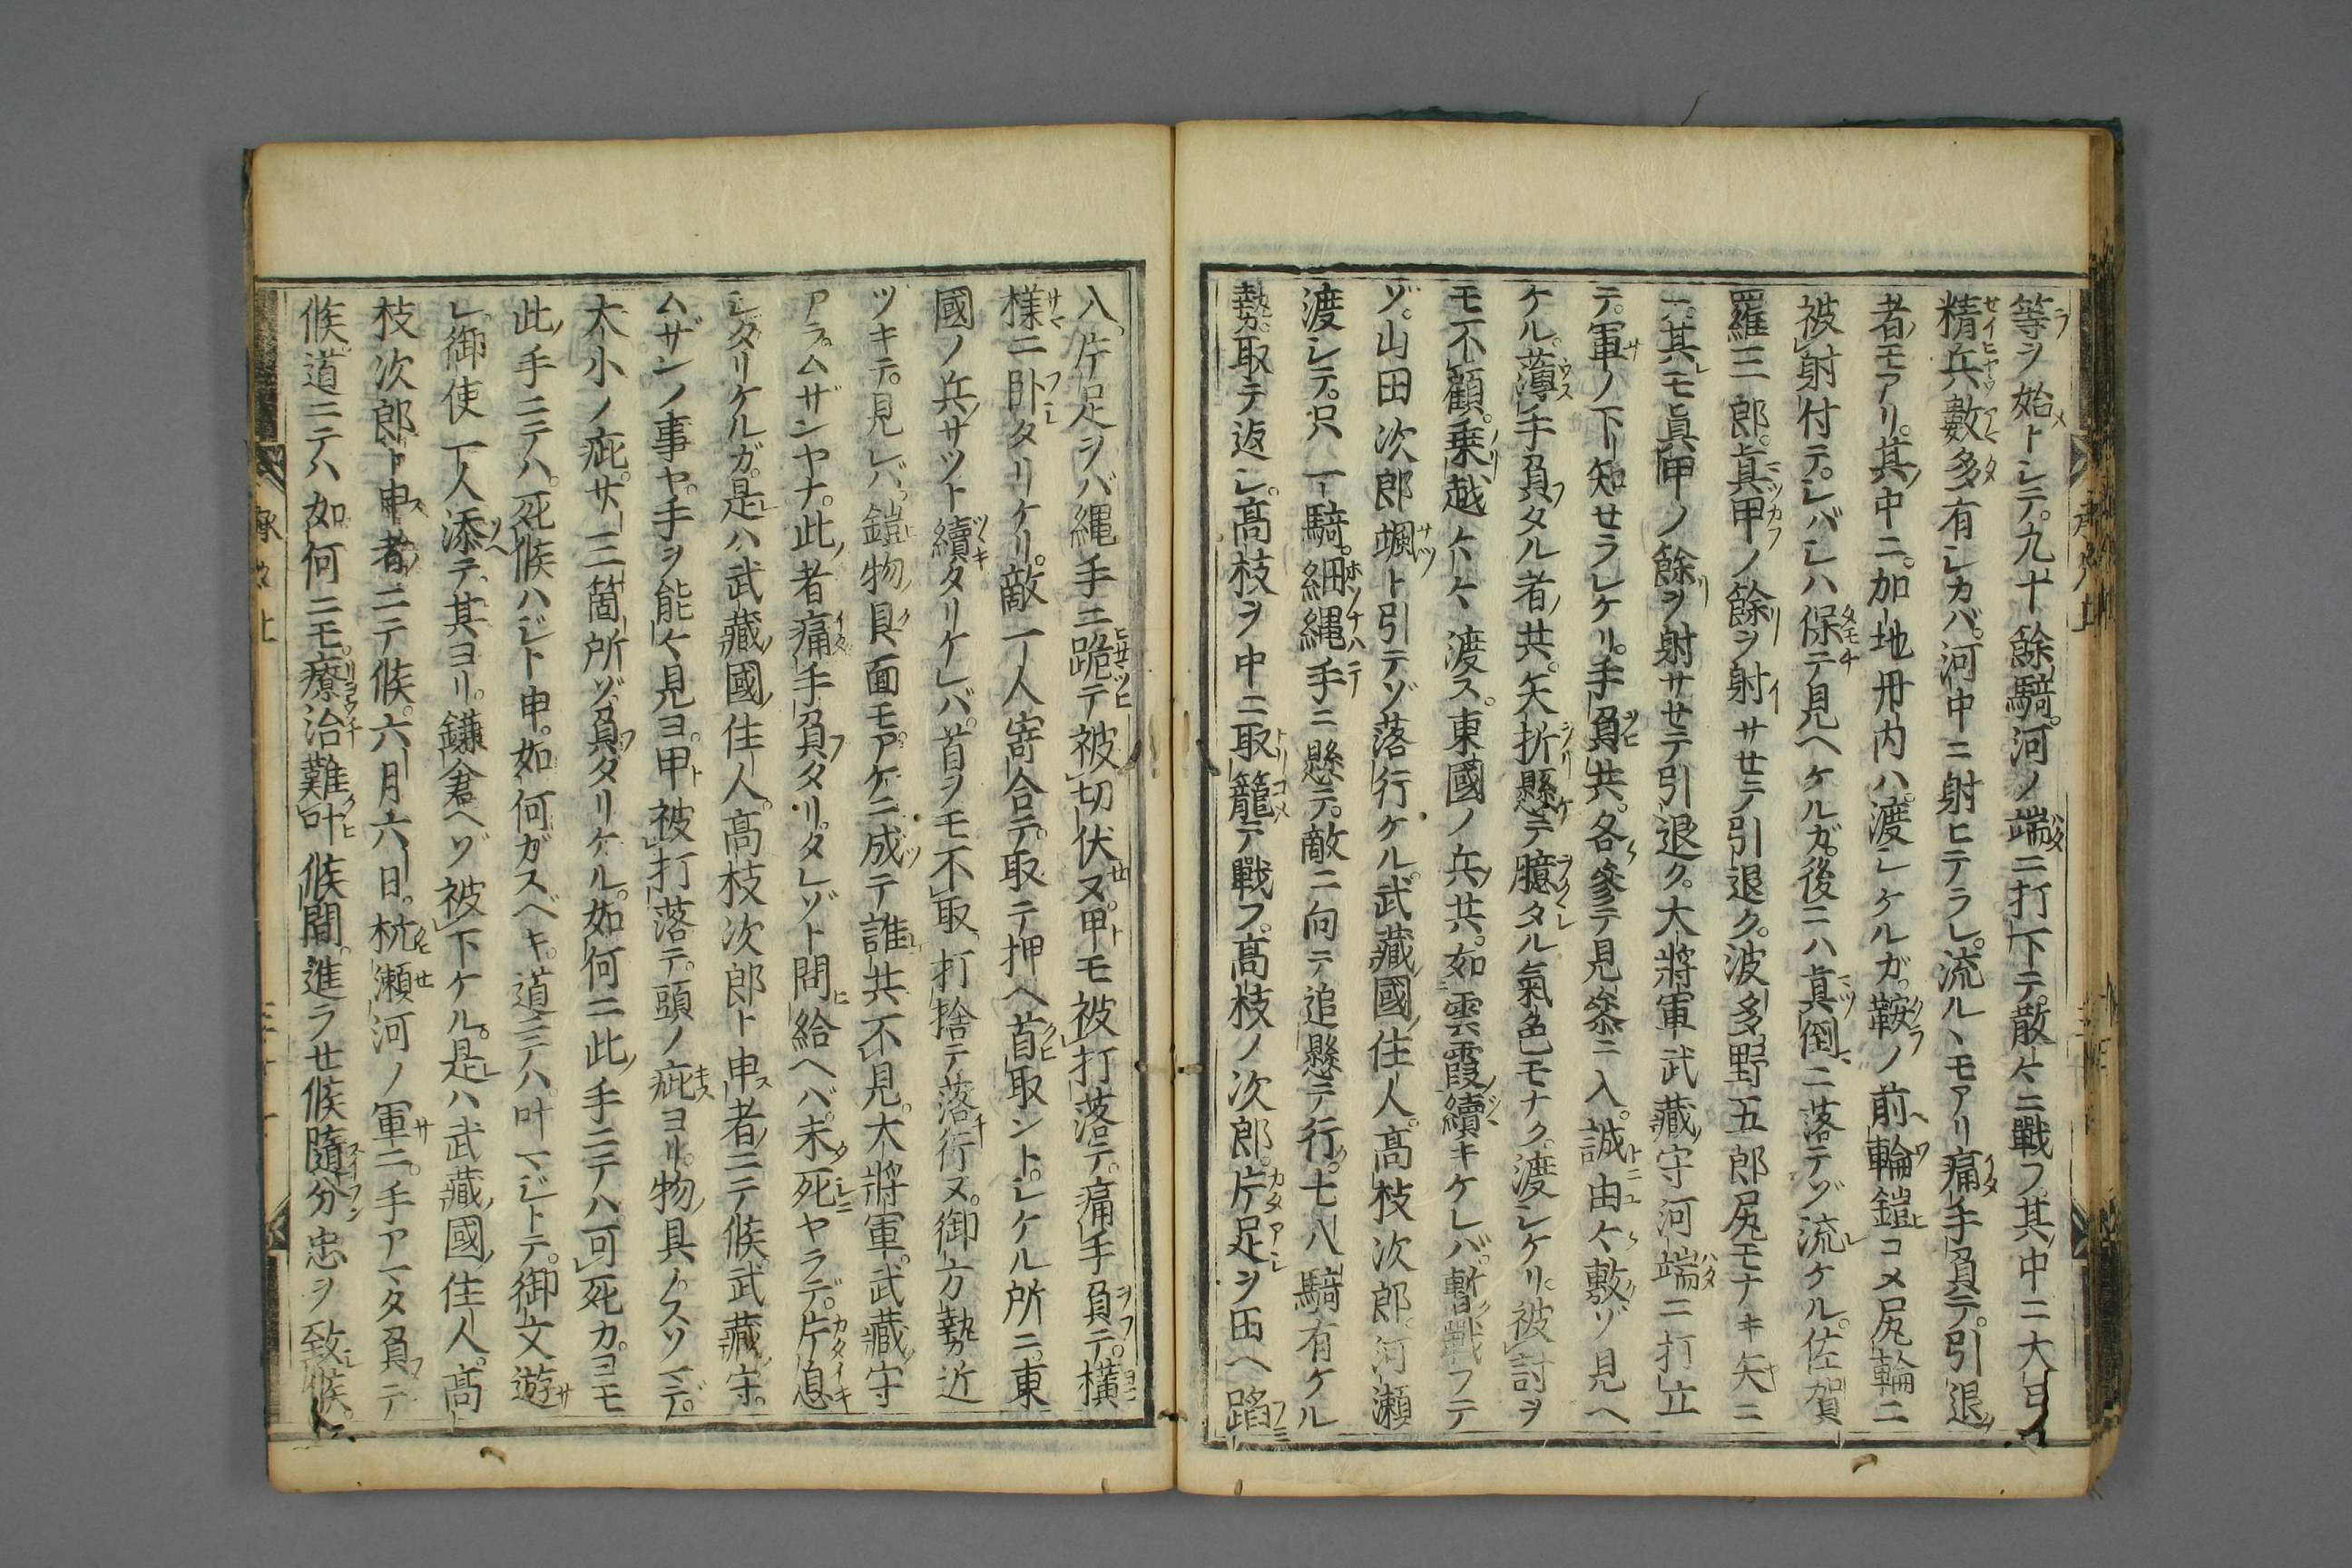 等ヲ始トシテ。九十餘騎。河ノ端ニ打下テ。散々ニ戰フ。其中ニ大弓
精兵數多有シカバ。河中ニ射ヒテラレ。流ルヽモアリ痛手負テ。引退
者モアリ。其中ニ。加地丹内ハ。渡シケルガ。鞍ノ前輪鎧コメ尻輪ニ
被射付テ。シバシハ保テ見ヘケルガ。後ニハ眞倒ニ落テゾ流ケル。佐賀
羅三郎。眞甲ノ餘ヲ射サセテ引退ク。波多野五郎尻モナキ矢ニ
テ。其モ眞甲ノ餘ヲ射サセテ引退ク。大將軍武藏守河端ニ打立
テ。軍ノ下知セラレケリ。手負共。各參テ見參ニ入。誠由々敷ゾ見ヘ
ケル。薄手負タル者共。矢折懸テ臆タル氣色モナク。渡シケリ。被討ヲ
モ不顧。乗越々々渡ス。東國ノ兵共。如雲霞續キケレバ。暫戰フテ
ゾ。山田次郎颯ト引テゾ落行ケル。武藏國住人。高枝次郎。河瀬
渡シテ。只一騎。細縄手ニ懸テ。敵ニ向テ追懸テ行。七八騎有ケル
勢。取テ返シ。高枝ヲ中ニ取籠テ戰フ。高枝ノ次郎。片足ヲ田ヘ蹈
入。片足ヲバ縄手ニ跪テ被切伏ヌ。甲モ被打落テ。痛手負テ。横
様ニ卧タリケリ。敵一人寄合テ。取テ押ヘ首取ント。シケル所ニ。東
國ノ兵サツト續タリケレバ。首ヲモ不取打捨テ落行ヌ。御方勢近
ツキテ。見レバ。鎧物具面モアケニ成テ誰共不見。大將軍。武藏守
アラムザンヤナ。此者痛手負タリ。タレゾト問給ヘバ。未死ヤラデ。片息
シタリケルガ。是ハ武藏國住人。高枝次郎ト申者ニテ候。武藏守。
ムザンノ事ヤ。手ヲ能々見ヨ。甲被打落テ。頭ノ疵ヨリ。物具ノスソマデ。
大小ノ疵。廿三箇所ゾ負タリケル。如何ニ此手ニテハ可死カ。ヨモ
此手ニテハ。死候ハジト申。如何ガスベキ。道ニテハ。叶マジトテ。御文遊
シ。御使一人添テ。其ヨリ。鎌倉ヘゾ被下ケル。是ハ武藏國住人。高
枝次郎ト申者ニテ候。六月六日。杭瀬河ノ軍ニ。手アマタ負テ
候。道ニテハ如何ニモ。療治難叶候間。進ラセ候隨分忠ヲ致候。